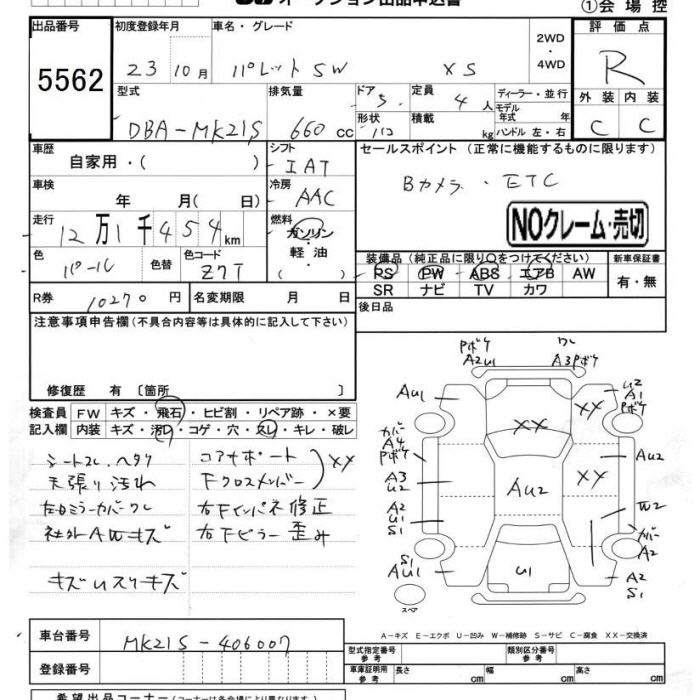 ①会場控
出品番号
5562
初度登録年月
23 10月
車名・グレード
パレットSW XS
2WD
・
4WD
評価点
R
外装 内装
C C
型式
DBA-MK21S
排気量
660 cc
ドア
5
定員
4 人
形状
積載
kg
ディーラー・並行
モデル
年式 年
ハンドル 左・右
車歴
自家用・( )
シフト
IAT
セールスポイント (正常に機能するものに限ります)
Bカメラ・ETC
NOクレーム・売切
車検
年 月( 日)
冷房
AAC
走行
12万1千454km
燃料
ガソリン
・
軽油
( )
色
パール
色替
色コード
Z7T
装備品 (純正品に限り○をつけてください)
PS PW ABS エアB AW
SR ナビ TV カワ
新車保証書
有・無
R券
10270 円
名変期限 月 日
後日品
注意事項申告欄 (不具合内容等は具体的に記入して下さい)
修復歴 有 〔箇所 〕
検査員
記入欄
FW キズ・飛石・ヒビ割・リペア跡・×要
内装 キズ・汚レ・コゲ・穴・スレ・キレ・破レ
シートスレ、ヘタリ
天張り汚れ
左ドミラーカバーワレ
社外AWキズ
キズUスリキズ
コアサポート
FクロスメンバーXX
右Fインパネ修正
右Fピラー歪み
Pボケ
A2U1
ワレ
A3Pボケ
AU1
U2
A1
Pボケ
XX
XX
XX
カバー
A4
Pボケ
A3
U2
A2
U1
S1
AU2
AU2
W2
カバー
A2
S1
AU1
U1
A2
S2
スペア
A-キズ E-エクボ U-凹み W-補修跡 S-サビ C-腐食 XX-交換済
車台番号
MK21S-406007
登録番号
型式指定番号
参考
類別区分番号
参考
車庫証明用
参考
長さ cm 幅 cm 高さ cm
希望出品コーナー (コーナーは各会場により異なります)